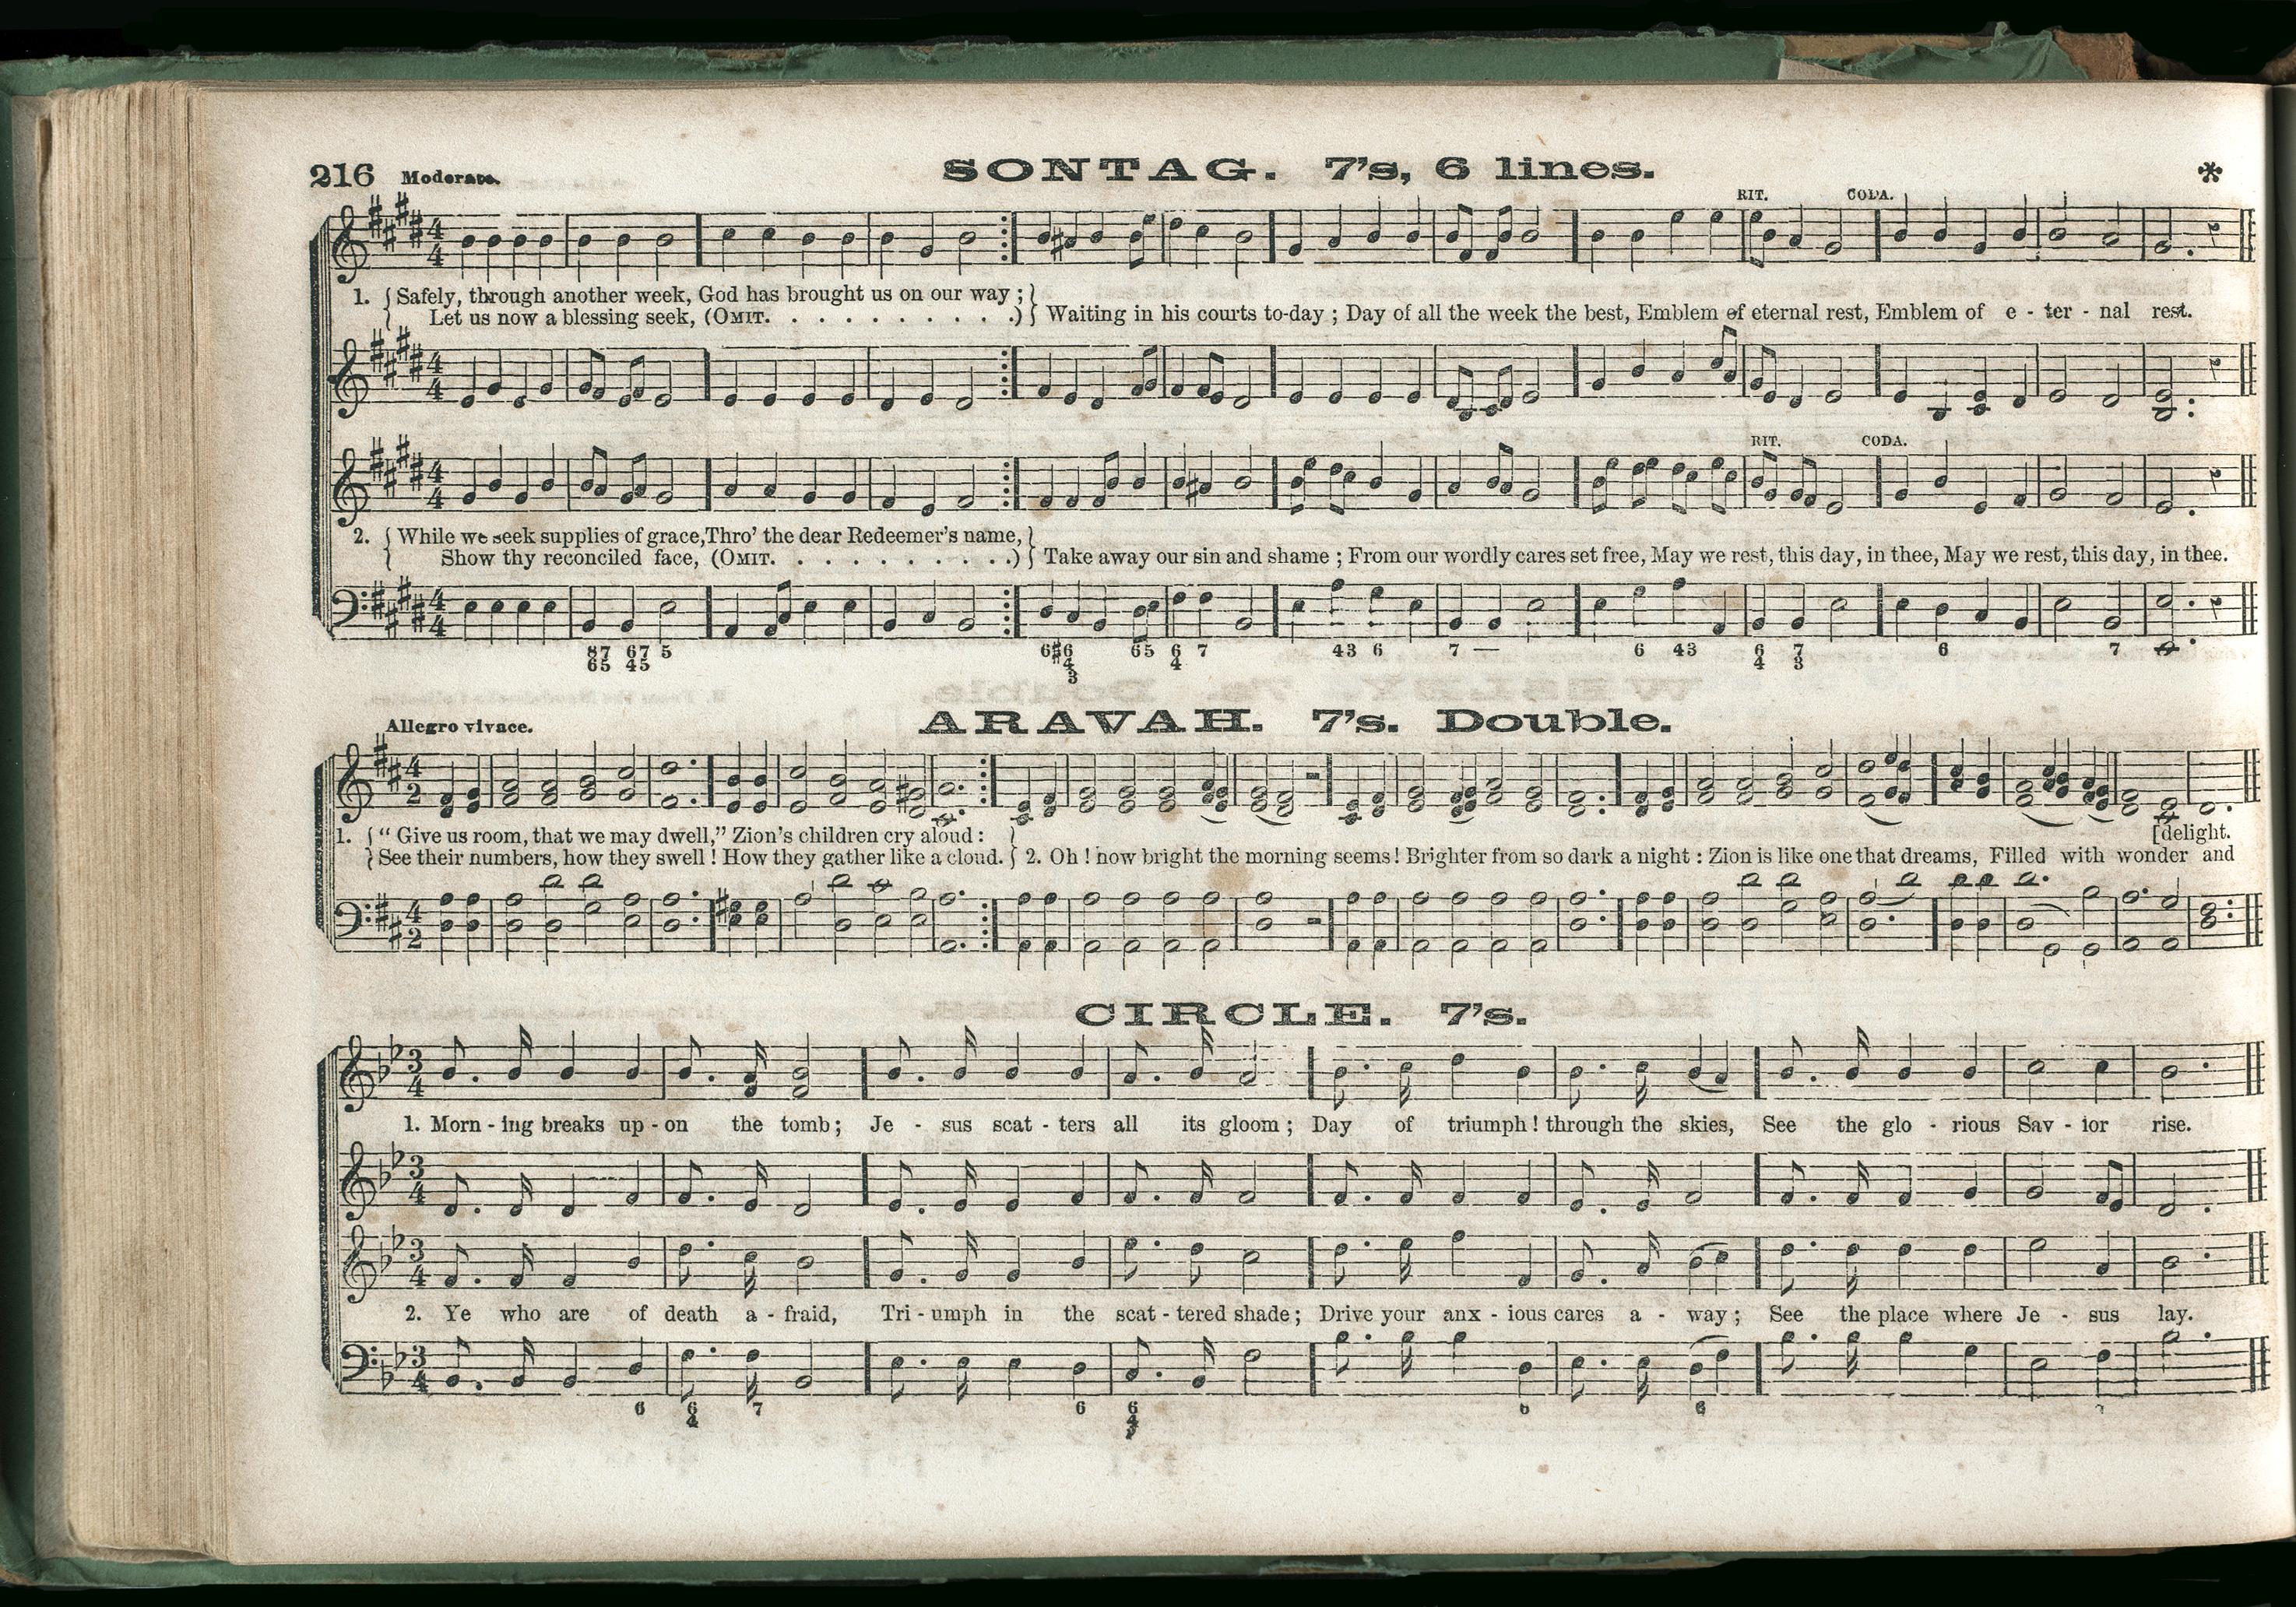 216 Moderato. SONTAG. 7's, 6 lines. *
RIT. CODA.
1. { Safely, through another week, God has brought us on our way ; }
Let us now a blessing seek, (OMIT. . . . . . . . . . .) } Waiting in his courts to-day ; Day of all the week the best, Emblem of eternal rest, Emblem of e - ter - nal rest.
RIT. CODA.
2. { While we seek supplies of grace, Thro' the dear Redeemer's name, }
Show thy reconciled face, (OMIT. . . . . . . . . . .) } Take away our sin and shame ; From our wordly cares set free, May we rest, this day, in thee, May we rest, this day, in thee.
87 67 5 6#6 65 6 7 43 6 7 — 6 43 6 7 6 7
65 45 4 4 4 3
3
Allegro vivace. ARAVAH. 7's. Double.
1. { “ Give us room, that we may dwell,” Zion's children cry aloud : } [delight.
} See their numbers, how they swell ! How they gather like a cloud. } 2. Oh ! how bright the morning seems ! Brighter from so dark a night : Zion is like one that dreams, Filled with wonder and
CIRCLE. 7's.
1. Morn - ing breaks up - on the tomb ; Je - sus scat - ters all its gloom ; Day of triumph ! through the skies, See the glo - rious Sav - ior rise.
2. Ye who are of death a - fraid, Tri - umph in the scat - tered shade ; Drive your anx - ious cares a - way ; See the place where Je - sus lay.
6 6 7 6 6 6 6
4 4